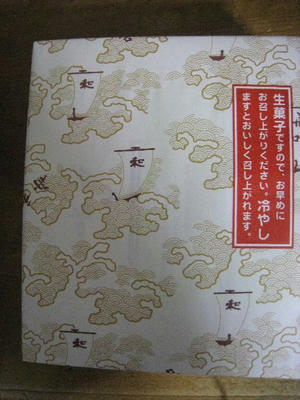 生菓子ですので、お早めに
お召し上がりください。冷やし
ますとおいしく召し上がれます。
和
和
和
和